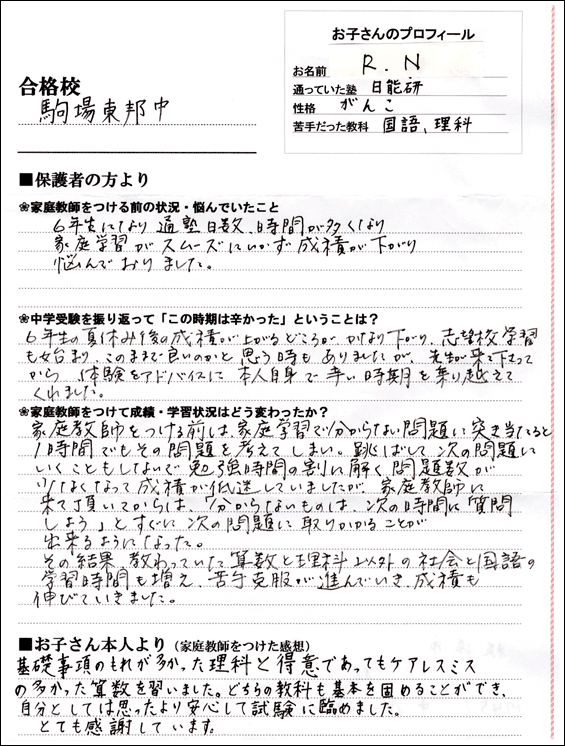 お子さんのプロフィール
お名前 R.N
通っていた塾 日能研
性格 がんこ
苦手だった教科 国語、理科
合格校
駒場東邦中
■保護者の方より
❀家庭教師をつける前の状況・悩んでいたこと
6年生になり通塾日数、時間が多くなり
家庭学習がスムーズにいかず成績が下がり
悩んでおりました。
❀中学受験を振り返って「この時期は辛かった」ということは？
6年生の夏休み後の成績が上がるどころか、かなり下がり、志望校学習
も始まり、このままで良いのかと思う時もありましたが、先生が来て下さって
から、体験をアドバイスに本人自身で辛い時期を乗り越えて
くれました。
❀家庭教師をつけて成績・学習状況はどう変わったか？
家庭教師をつける前は、家庭学習で分からない問題に突き当たると
1時間でもその問題を考えてしまい。跳ばして次の問題に
いくこともしないで勉強時間の割に解く問題数が
少なくなって成績が低迷していましたが、家庭教師に
来て頂いてからは、「分からないものは、次の時間に質問
しよう」とすぐに次の問題に取りかかることが
出来るようになった。
その結果、教わっていた算数と理科以外の社会と国語の
学習時間も増え、苦手克服が進んでいき、成績も
伸びていきました。
■お子さん本人より（家庭教師をつけた感想）
基礎事項のもれが多かった理科と得意であってもケアレスミス
の多かった算数を習いました。どちらの教科も基本を固めることができ、
自分としては思ったより安心して試験に臨めました。
とても感謝しています。